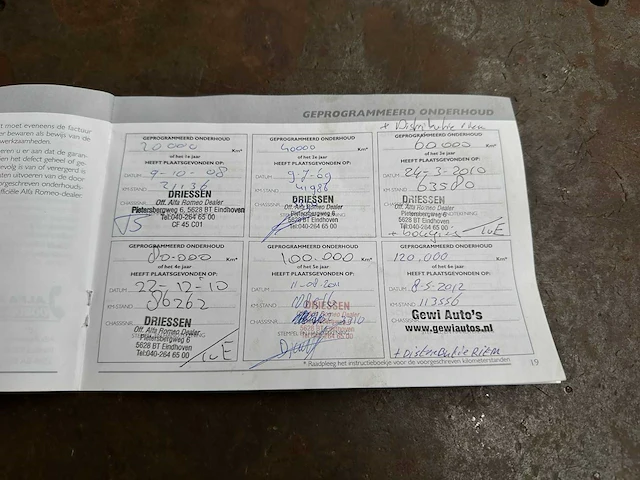 moet eveneens de factuur
er bewaren als bewijs van de
werkzaamheden.
eren u er aan dat de garan-
en het defect geheel of ge-
volg is van of verergerd is
ten uitvoeren van de door
orgeschreven onderhouds-
fficiële Alfa Romeo-dealer
GEPROGRAMMEERD ONDERHOUD
+ Distributie riem
GEPROGRAMMEERD ONDERHOUD
20.000 Km*
of het 1e jaar
HEEFT PLAATSGEVONDEN OP:
DATUM 9-10-08
KM.STAND 21136
DRIESSEN
Off. Alfa Romeo Dealer
Pietersbergweg 6, 5628 BT Eindhoven
Tel:040-264 65 00
CF 45 C01
GEPROGRAMMEERD ONDERHOUD
40000 Km*
of het 2e jaar
HEEFT PLAATSGEVONDEN OP:
DATUM 9-7-09
KM.STAND 41986
DRIESSEN
Off. Alfa Romeo Dealer
Pietersbergweg 6
5628 BT Eindhoven
Tel:040-264 65 00
GEPROGRAMMEERD ONDERHOUD
60.000 Km*
of het 3e jaar
HEEFT PLAATSGEVONDEN OP:
DATUM 24-3-2010
KM.STAND 63580
DRIESSEN
Off. Alfa Romeo Dealer
Pietersbergweg 6
5628 BT Eindhoven
Tel:040-264 65 00
+ bougies
GEPROGRAMMEERD ONDERHOUD
80.000 Km*
of het 4e jaar
HEEFT PLAATSGEVONDEN OP:
DATUM 22-12-10
KM.STAND
CHASSISNR.
DRIESSEN
Off. Alfa Romeo Dealer
Pietersbergweg 6
5628 BT Eindhoven
Tel:040-264 65 00
GEPROGRAMMEERD ONDERHOUD
100.000 Km*
of het 5e jaar
HEEFT PLAATSGEVONDEN OP:
DATUM 11-08-2011
KM.STAND
CHASSISNR.
DRIESSEN
STEMPEL
GEPROGRAMMEERD ONDERHOUD
120.000 Km*
of het 6e jaar
HEEFT PLAATSGEVONDEN OP:
DATUM 8-5-2012
KM.STAND 113556
CHASSISNR.
Gewi Auto's
www.gewiautos.nl
+ Distributie Riem
* Raadpleeg het instructieboekje voor de voorgeschreven kilometerstanden
19